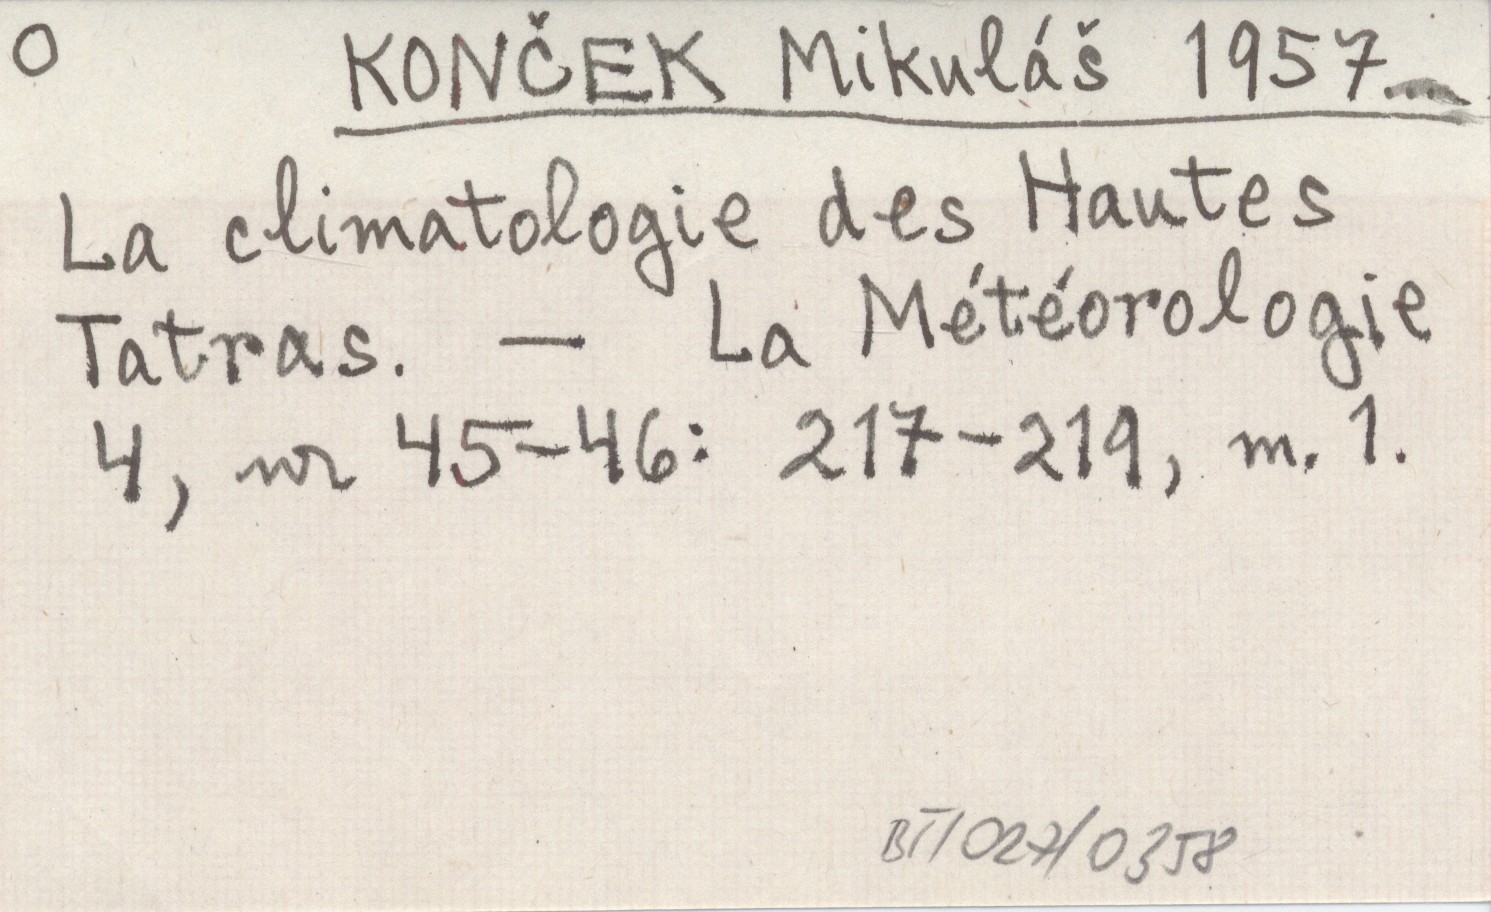 O KONČEK Mikuláš 1957
La climatologie des Hautes
Tatras. — La Météorologie
4, nr 45-46: 217-219, m. 1.
BT/027/0358